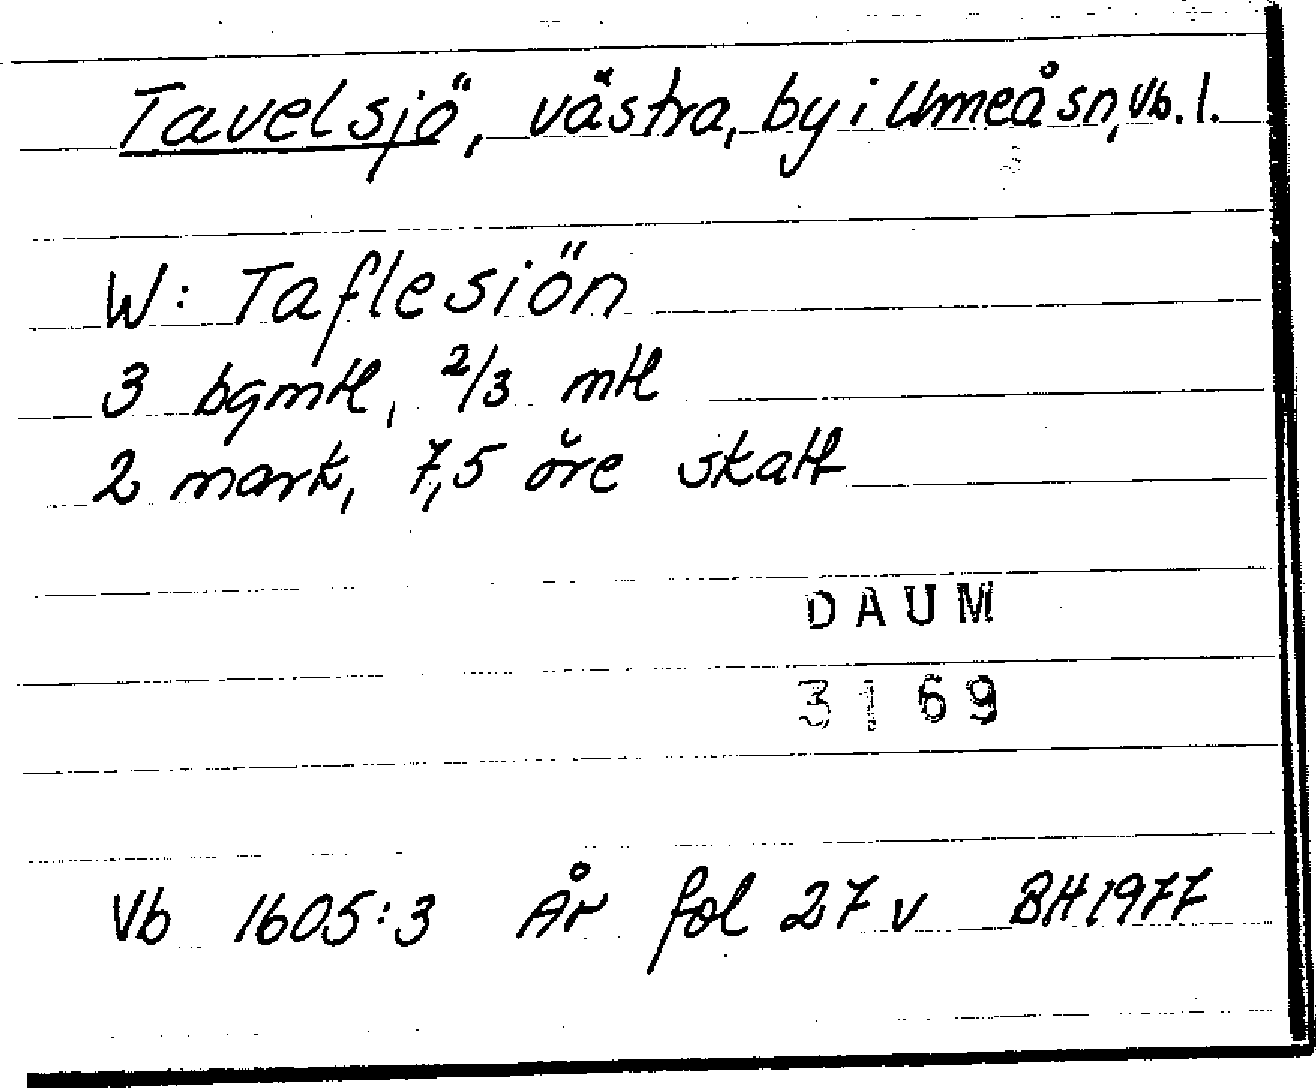 Tavelsjö, västra, by i Umeå sn, Vb. l.
W: Taflesiön
3 bgmtl, 2/3 mtl
2 mark, 7,5 öre skatt
DAUM
3169
Vb 1605:3 År fol 27 v BH 1977